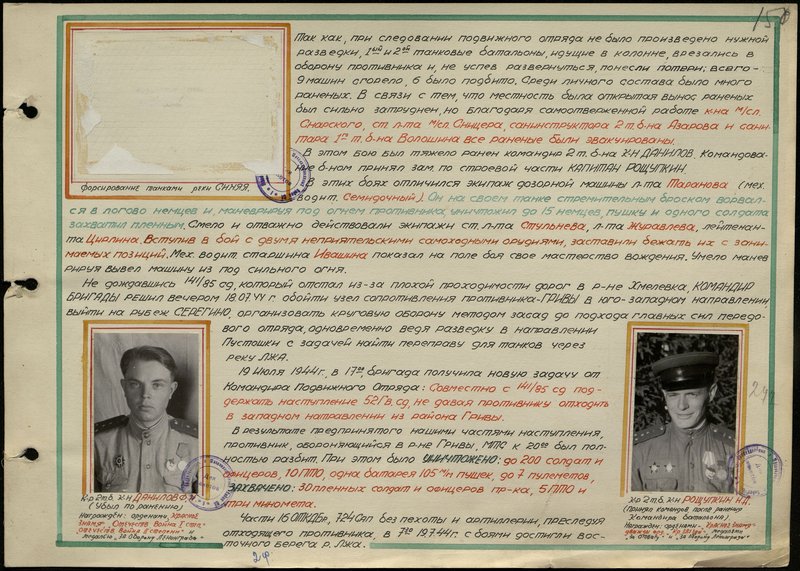 Так как, при следовании подвижного отряда не было произведено нужной
разведки, 1ый и 2ой танковые батальоны, идущие в колонне, врезались в
оборону противника и, не успев развернуться, понесли потери: всего-
9 машин сгорело, 6 было подбито. Среди личного состава было много
раненых. В связи с тем, что местность была открытая вынос раненых
был сильно затруднен, но благодаря самоотверженной работе к-на м/сл.
Снарского, ст. л-та м/сл. Сницера, санинструктора 2 т.б-на Азарова и сани-
тара 1го т.б-на Волошина все раненые были эвакуированы.
В этом бою был тяжело ранен командир 2 т.б-на К-Н ДАНИЛОВ. Командова-
ние б-ном принял зам. по строевой части КАПИТАН РОЩУПКИН.
В этих боях отличился экипаж дозорной машины л-та Таранова (мех.
водит. Семидочный). Он на своем танке стремительным броском ворвал-
форсирование танками реки СИНЯЯ.
ся в логово немцев и, маневрируя под огнем противника, уничтожил до 15 немцев, пушку и одного солдата
захватил пленным. Смело и отважно действовали экипажи ст. л-та Стульнева, л-та Журавлева, лейтенан-
та Цирлина. Вступив в бой с двумя неприятельскими самоходными орудиями, заставили бежать их с зани-
маемых позиций. Мех. водит. старшина Ивашина показал на поле боя свое мастерство вождения. Умело манев
рируя вывел машину из под сильного огня.
Не дождавшись 141/85 сд, который отстал из-за плохой проходимости дорог в р-не Хмелевка, КОМАНДИР
БРИГАДЫ РЕШИЛ вечером 18.07.44 г. обойти узел сопротивления противника-ГРИВЫ в юго-западном направлении
выйти на рубеж СЕРЕГИНО, организовать круговую оборону методом засад до подхода главных сил передо-
вого отряда, одновременно ведя разведку в направлении
Пустошки с задачей найти переправу для танков через
реку ЛЖА.
19 июля 1944 г. в 17оо бригада получила новую задачу от
Командира Подвижного Отряда: Совместно с 141/85 сд под-
держать наступление 52 Гв. сд, не давая противнику отходить
в западном направлении из района Гривы.
В результате предпринятого нашими частями наступления,
противник, обороняющийся в р-не Гривы, МТС к 20оо был пол-
ностью разбит. При этом было УНИЧТОЖЕНО: до 200 солдат и
офицеров, 10 ПТО, одна батарея 105 м/м пушек, до 7 пулеметов,
ЗАХВАЧЕНО: 30 пленных солдат и офицеров пр-ка, 5 ПТО и
три миномета.
Части 16 ОТКДБр, 724 сап без пехоты и артиллерии, преследуя
отходящего противника, в 7оо 19.7.44 г. с боями достигли вос-
точного берега р. Лжа.
К-р 2 т.б. К-н ДАНИЛОВ
(Убыл по ранению)
Награжден: орденами, Красное
Знамя, Отечеств. Война I степ.
Отечеств. Война II степени" и
медалью „За Оборону Ленинграда"
К-р 2 т.б. К-н РОЩУПКИН
(Принял командов. после ранения
Командира батальона)
Награжден: орденами-
медалями
„За отвагу" и „За Оборону Ленинграда"